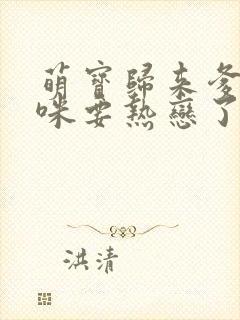 萌寶歸來爹
咪要熱戀了
洪清